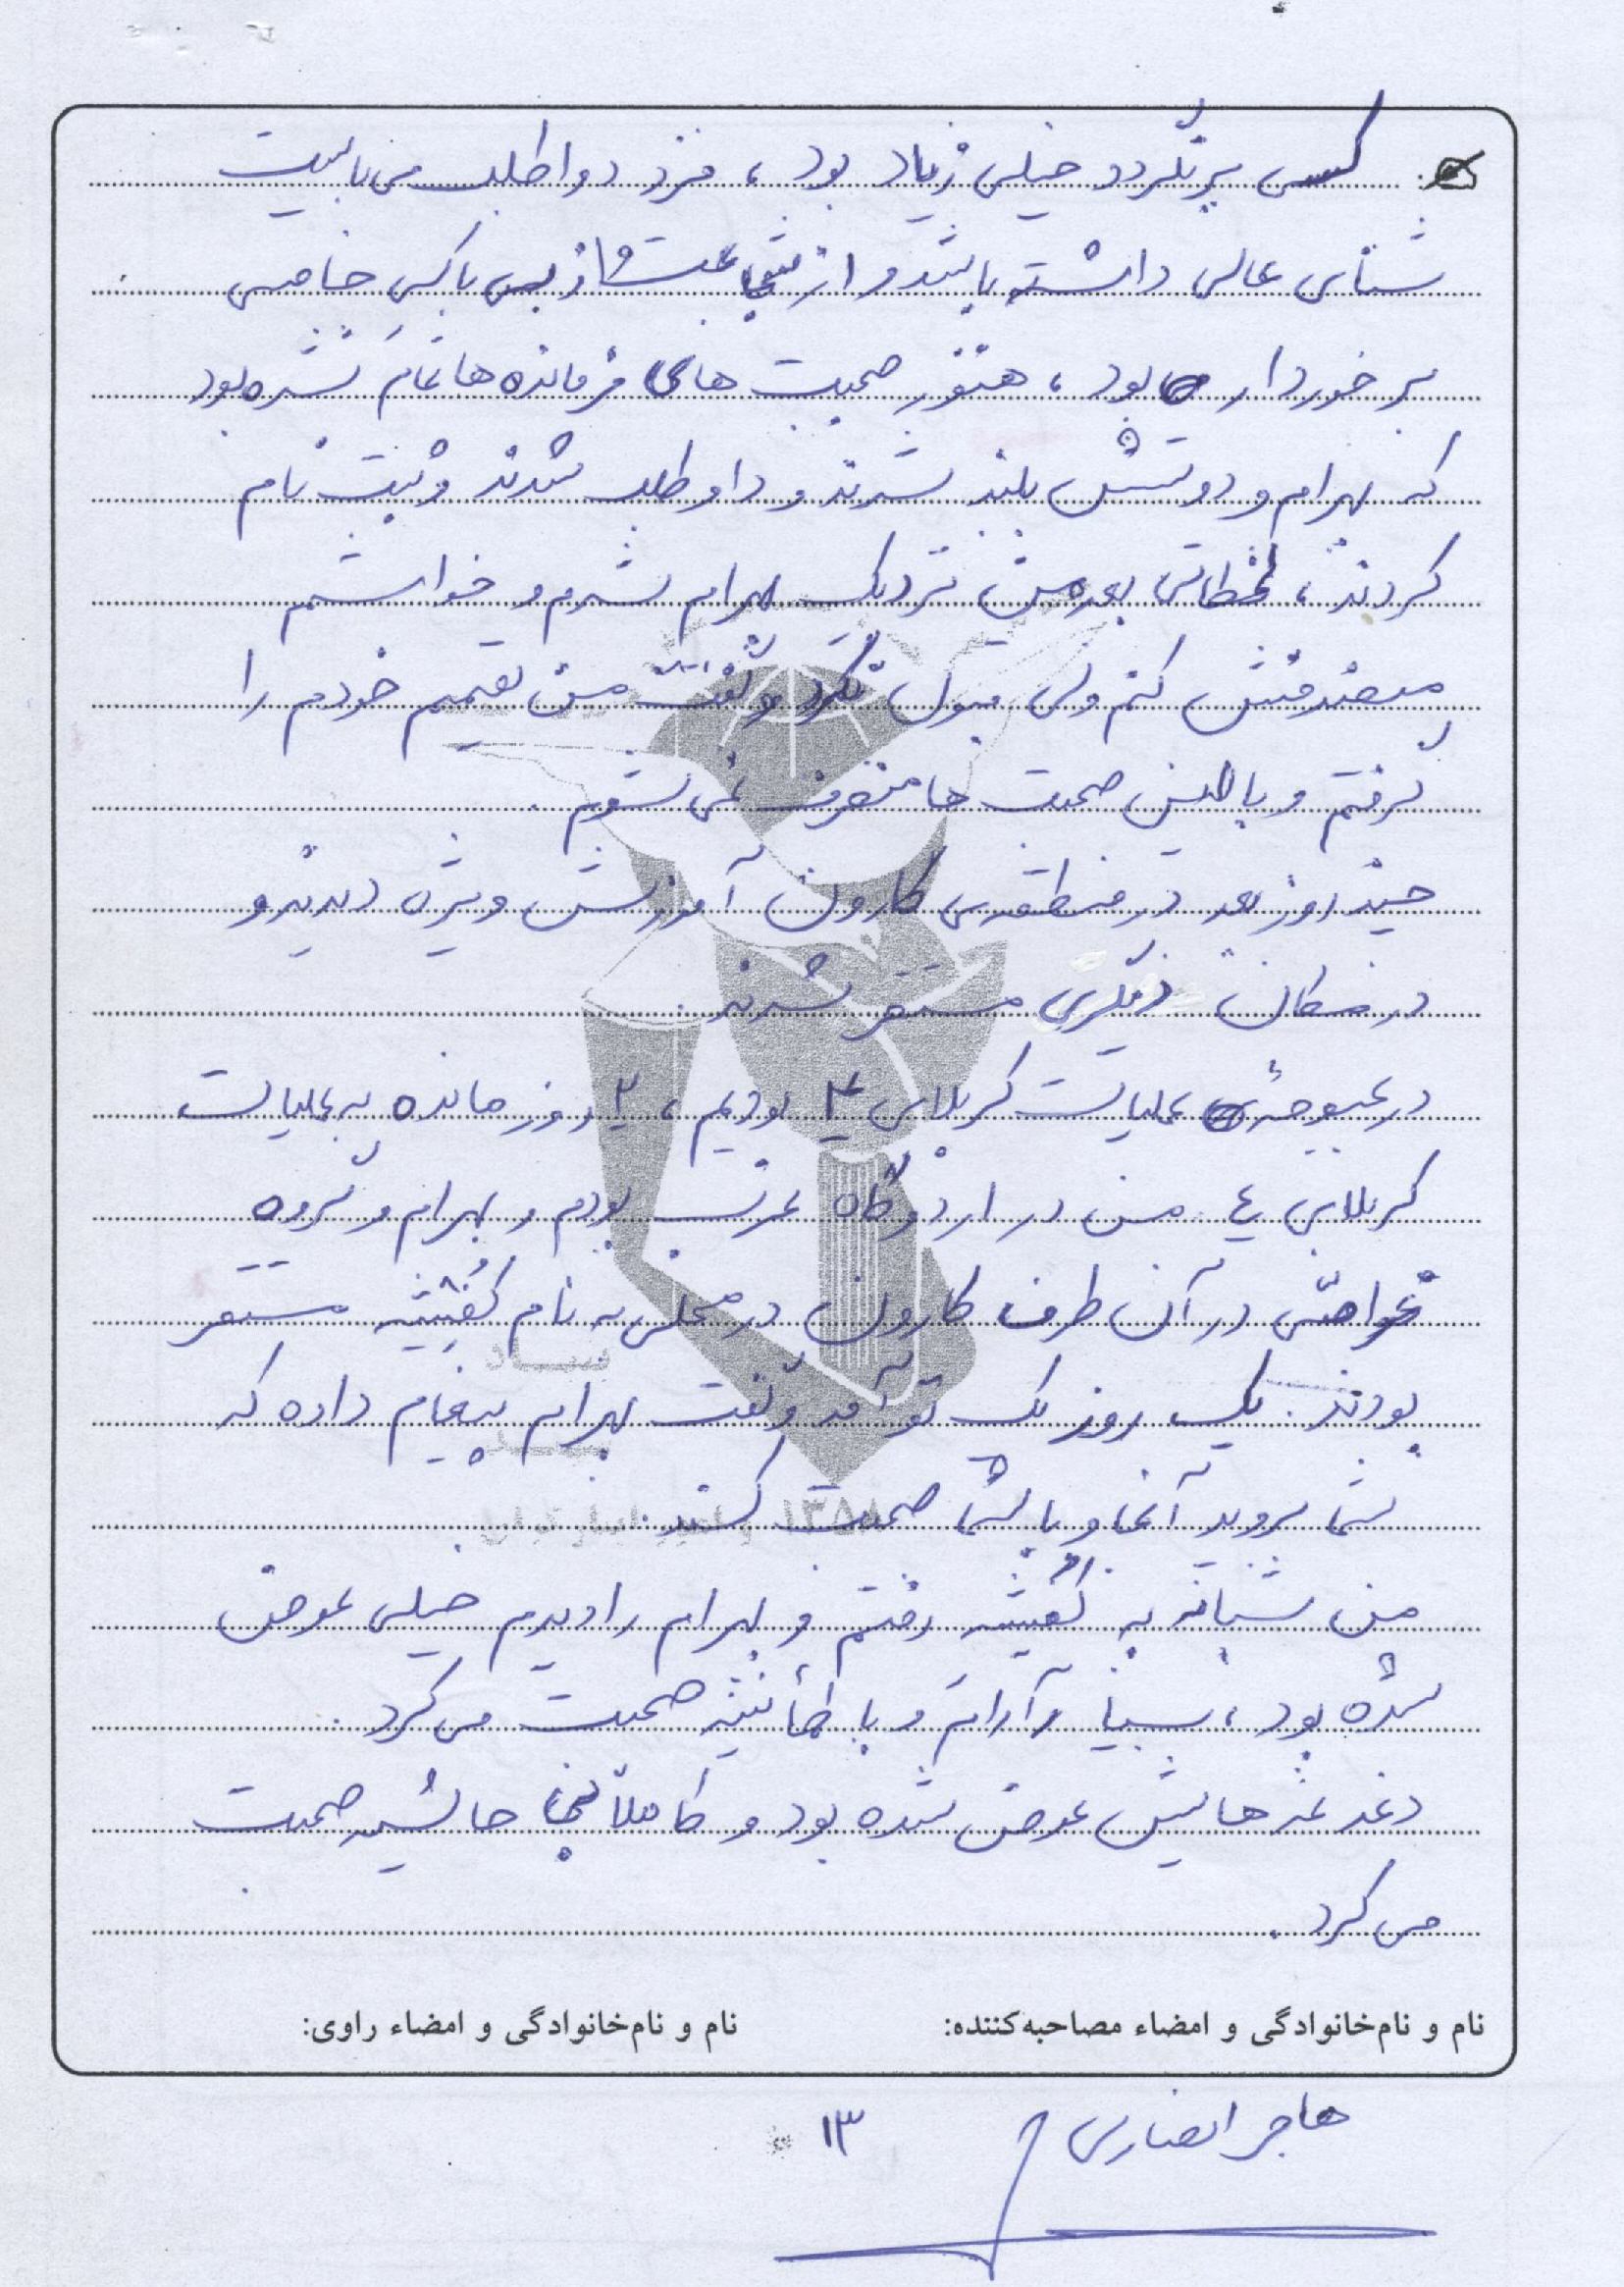 کسی برنگردد خیلی زیاد بود ، فرد دواطلب می بایست
شنای عالی داشته باشد و از شجاعت و از بی باکی خاصی
برخوردار بود ، هنوز صحبت های فرمانده ها تمام نشده بود
که بهرام و دوستش بلند شدند و داوطلب شدند و ثبت نام
کردند ، لحظاتی بعد من نزدیک بهرام شدم و خواستم
منصرفش کنم ولی قبول نکرد و گفت من تصمیم خودم را
گرفتم و با این صحبت ها منصرف نمی شوم .
چند روز بعد در منطقه ی کارون آموزش ویژه دیدند و
در مکان دیگری مستقر شدند .
در بحبوحه ی عملیات کربلای ۴ بودیم ، ۲ روز مانده به عملیات
کربلای ٤ من در اردوگاه عرب بودم و بهرام و گروه
غواصی در آن طرف کارون در محلی به نام کُفیشه مستقر
بودند . یک روز یک نو آمد و گفت بهرام پیغام داده که
شما بروید آنجا و با شما صحبت کند .
من شبانه به کُفیشه رفتم و بهرام را دیدم خیلی عوض
شده بود ، بسیار آرام و با طمأنینه صحبت می کرد .
دغدغه هایش عوض شده بود و کاملاً صحبت
می کرد .
نام و نام‌خانوادگی و امضاء مصاحبه‌کننده: نام و نام‌خانوادگی و امضاء راوی:
هاجر انصاری
۱۳